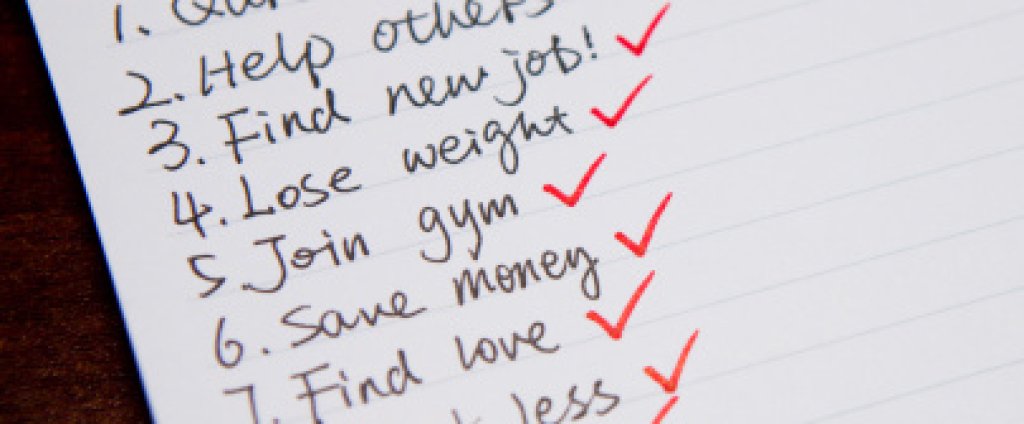 1.
2. Help others
3. Find new job!
4. Lose weight
5. Join gym
6. Save money
7. Find love
less